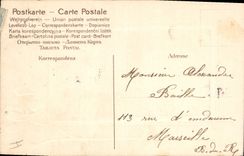 Postkarte — Carte Postale
Weltpostverein — Union postale universelle
Levelező-Lap — Correspondenzkarte — Dopisnice
Karta korespondencyjna — Korespondenční lístek
Briefkaart — Cartolina postale — Post card — Brefkort
Открытое письмо — Дописна Карта
Tarjeta Postal
Korespondenz
Monsieur Alexandre
113 rue d'
Marseille
B. d. R.